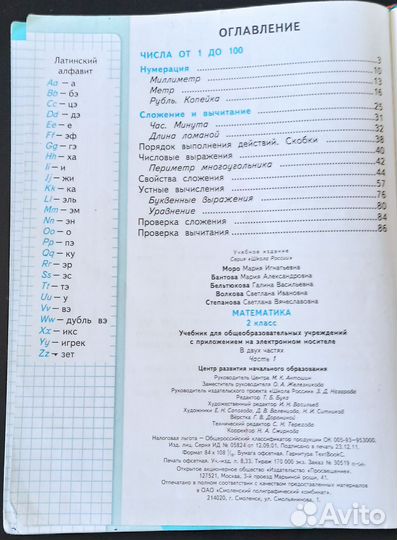 Латинский
алфавит
Aa — а
Bb — бэ
Cc — цэ
Dd — дэ
Ee — е
Ff — эф
Gg — гэ
Hh — ха
Ii — и
Jj — жи
Kk — ка
Ll — эль
Mm — эм
Nn — эн
Oo — о
Pp — пэ
Qq — ку
Rr — эр
Ss — эс
Tt — тэ
Uu — у
Vv — вэ
Ww — дубль вэ
Xx — икс
Yy — игрек
Zz — зет
ОГЛАВЛЕНИЕ
ЧИСЛА ОТ 1 ДО 100
Нумерация 3
Миллиметр 10
Метр 13
Рубль. Копейка 16
Сложение и вычитание 25
Час. Минута 31
Длина ломаной 32
Порядок выполнения действий. Скобки 38
Числовые выражения 40
Периметр многоугольника 42
Свойства сложения 44
Устные вычисления 57
Буквенные выражения 76
Уравнение 80
Проверка сложения 84
Проверка вычитания 86
Учебное издание
Серия «Школа России»
Моро Мария Игнатьевна
Бантова Мария Александровна
Бельтюкова Галина Васильевна
Волкова Светлана Ивановна
Степанова Светлана Вячеславовна
МАТЕМАТИКА
2 класс
Учебник для общеобразовательных учреждений
с приложением на электронном носителе
В двух частях
Часть 1
Центр развития начального образования
Руководитель Центра М. К. Антошин
Заместитель руководителя О. А. Железникова
Руководитель издательского проекта «Школа России» З. Д. Назарова
Редактор Т. Б. Бука
Художественный редактор И. Н. Васильев
Художники Е. Н. Соколова, Д. В. Величкина, Н. И. Ситникова
Вёрстка Г. В. Дорониной
Технический редактор С. Н. Терехова
Корректор Н. А. Смирнова
Налоговая льгота — Общероссийский классификатор продукции ОК 005-93—953000.
Изд. лиц. Серия ИД № 05824 от 12.09.01. Подписано в печать 23.12.11.
Формат 84 х 108 1/16. Бумага офсетная. Гарнитура TextBookC.
Печать офсетная. Уч.-изд. л. 8,33. Тираж 170 000 экз. Заказ № 30519
Открытое акционерное общество «Издательство «Просвещение».
127521, Москва, 3-й проезд Марьиной рощи, 41.
Отпечатано в полном соответствии с качеством предоставленных материалов
в ОАО «Смоленский полиграфический комбинат».
214020, г. Смоленск, ул. Смольянинова, 1.
Avito